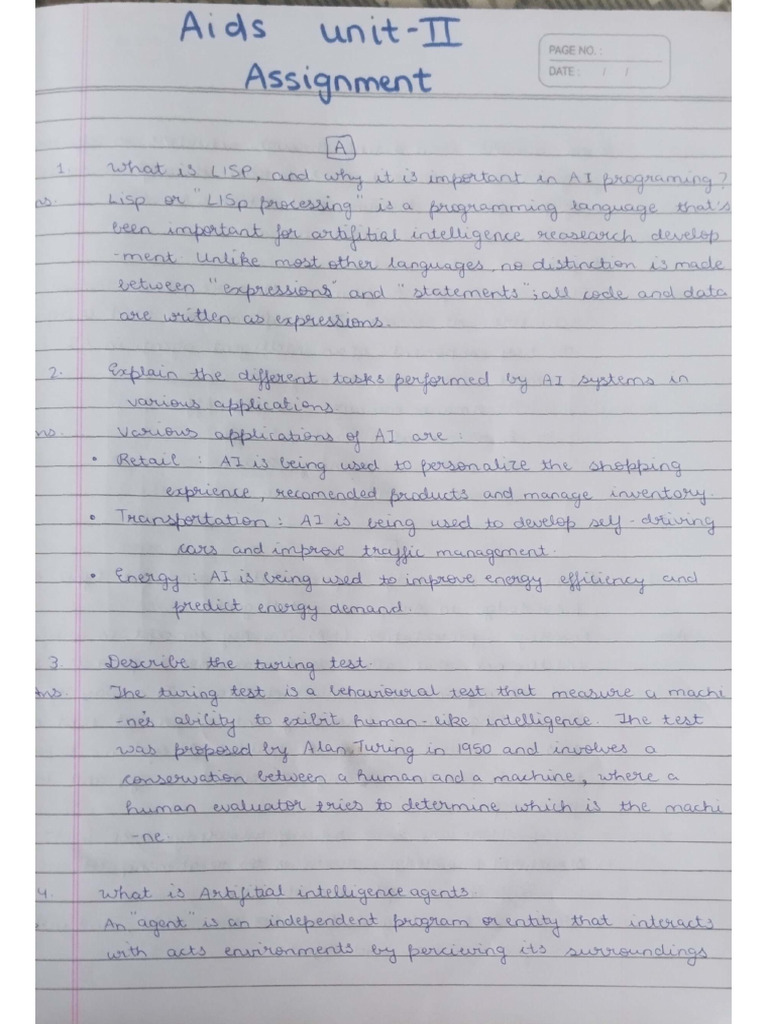 Aids unit-II
Assignment
PAGE NO. :
DATE : / /
A
1. What is LISP, and why it is important in AI programing?
ns. Lisp or "LISp processing" is a programming language that's
been important for artifitial intelligence reasearch develop
-ment. Unlike most other languages, no distinction is made
between "expressions" and "statements"; all code and data
are written as expressions.
2. Explain the different tasks performed by AI systems in
various applications.
ns. Various applications of AI are :
• Retail : AI is being used to personalize the shopping
exprience, recomended products and manage inventory.
• Transportation : AI is being used to develop self-driving
cars and improve traffic management.
• Energy : AI is being used to improve energy efficiency and
predict energy demand.
3. Describe the turing test.
ns. The turing test is a behavioural test that measure a machi
-ne's ability to exibit human-like intelligence. The test
was proposed by Alan Turing in 1950 and involves a
conservation between a human and a machine, where a
human evaluator tries to determine which is the machi
-ne.
4. What is Artifitial intelligence agents.
An "agent" is an independent program or entity that interacts
with acts environments by perciewing its surroundings